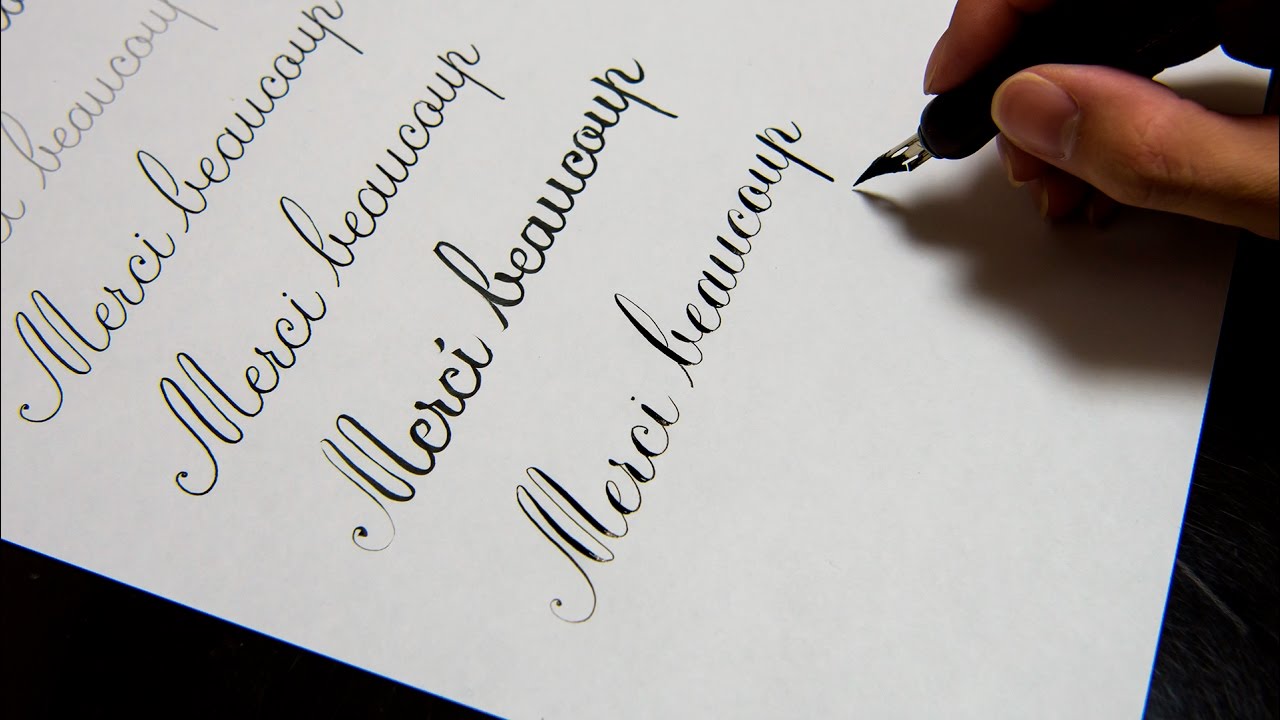 beaucoup
Merci beaucoup
Merci beaucoup
Merci beaucoup
Merci beaucoup